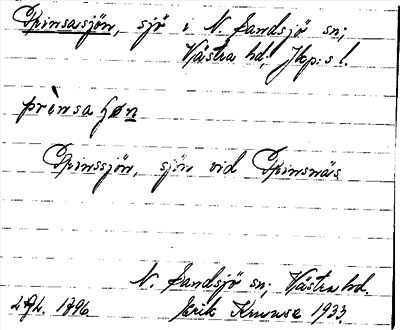 Prinsasjön, sjö i N. Sandsjö sn;
Västra hd. Jkp:s l.
prìnsa ʃøn
Prinssjön, sjön vid Prinsnäs
N. Sandsjö sn; Västra hd.
1896. Erik Knuuse 1933